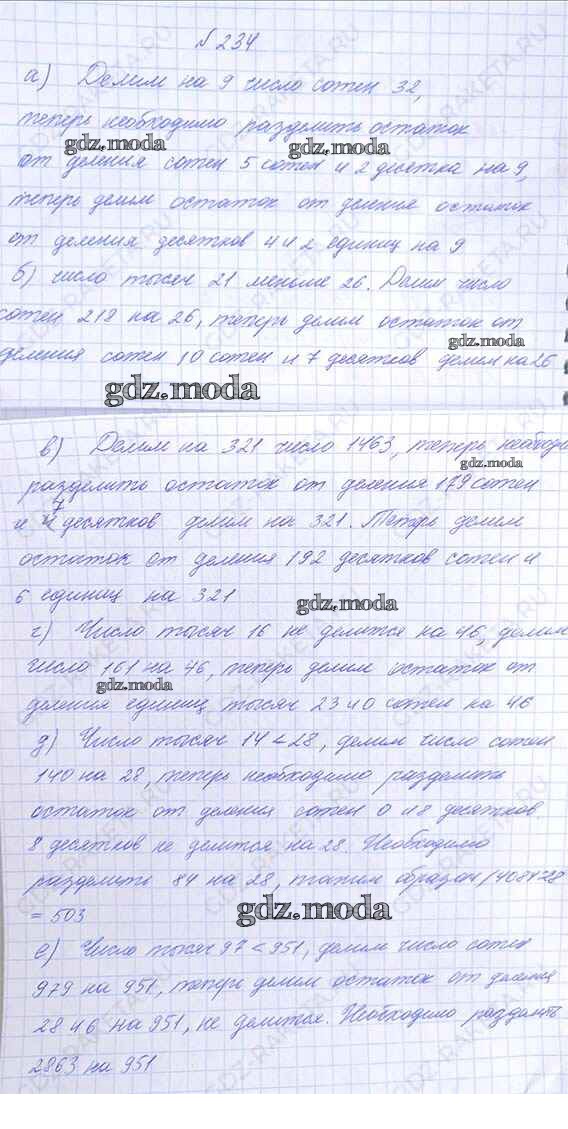 № 234
а) Делим на 9 число сотен 32,
теперь необходимо разделить остаток
gdz.moda gdz.moda
от деления сотен 5 сотен и 2 десятка на 9,
теперь делим остаток от деления остаток
от деления десятков 4 и 2 единиц на 9
б) число тысяч 21 меньше 26. Делим число
сотен 218 на 26, теперь делим остаток от
gdz.moda
деления сотен 10 сотен и 7 десятков делим на 26
gdz.moda
в) Делим на 321 число 1463, теперь необходи
gdz.moda
разделить остаток от деления 179 сотен
и 7 десятков делим на 321. Теперь делим
остаток от деления 192 десятков сотен и
6 единиц на 321
gdz.moda
г) Число тысяч 16 не делится на 46, делим
число 161 на 46, теперь делим остаток от
gdz.moda
деления единиц тысяч 23 и 0 сотен на 46
д) Число тысяч 14 < 28, делим число сотен
140 на 28, теперь необходимо разделить
остаток от деления сотен 0 и 8 десятков.
8 десятков не делится на 28. Необходимо
разделить 84 на 28, таким образом 14084:28
= 503
gdz.moda
е) Число тысяч 97 < 951, делим число сотен
979 на 951, теперь делим остаток от деления
28 и 6 на 951, не делится. Необходимо разделить
2863 на 951